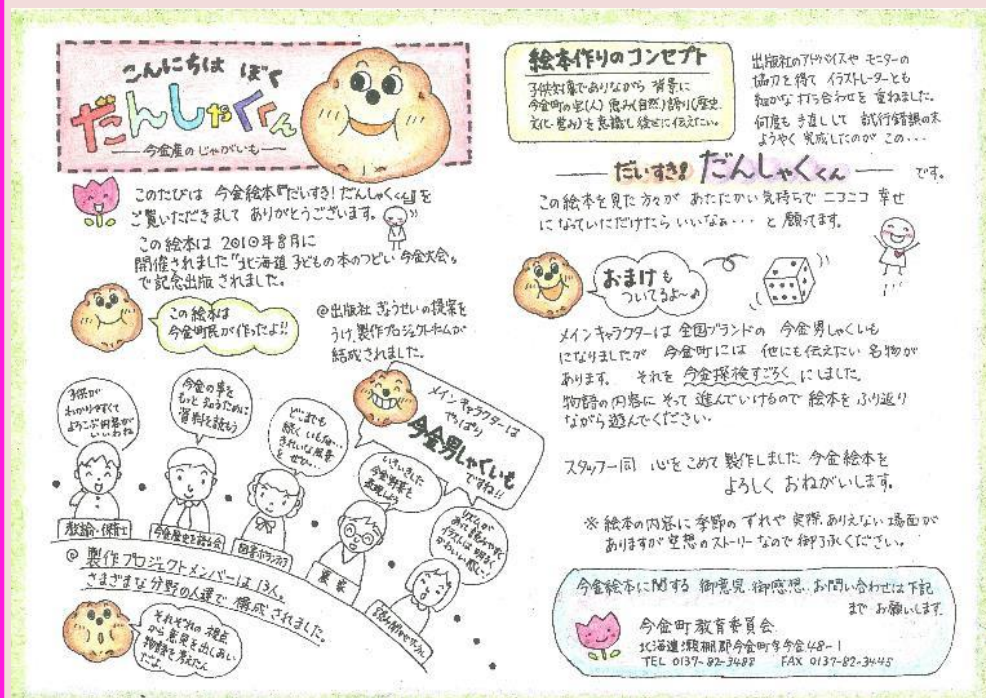 こんにちは ぼく
だんしゃくくん
今金産のじゃがいも
このたびは 今金絵本『だいすき！だんしゃくくん』を
ご覧いただきまして ありがとうございます。
この絵本は 2010年8月に
開催されました "北海道 子どもの本のつどい 今金大会"
で記念出版されました。
この絵本は
今金町民が作ったよ!!
@出版社 ぎょうせいの提案を
うけ 製作プロジェクトチームが
結成されました。
子供が
わかりやすくて
よろこぶ内容が
いいわね
今金の事を
もっと知るために
資料を読もう
どこまでも
続く いも畑…
きれいな風景
を ぜひ…
メインキャラクターは
やっぱり
今金男しゃくいも
ですね!!
いきいきした
今金野菜を
表現しよう
リズムが
あって 読みやすく
イラストは 明るく
かわいい感じ!
教諭・保育士
今金歴史を語る会
図書ボランティア
農家
@ 製作プロジェクトメンバーは 13人。
さまざまな分野の人達で 構成されました。
それぞれの 視点
から意見を出しあい
物語を考えたん
だよ。
絵本作りのコンセプト
子供対象でありながら 背景に
今金町の宝(人) 恵み(自然) 誇り(歴史
文化・営み)を意識し後世に伝えたい。
出版社のアドバイスや モニターの
協力を得て イラストレーターとも
細かな打ち合わせを 重ねました。
何度も手直しして 試行錯誤の末
ようやく 完成したのが この・・・
だいすき! だんしゃくくん です。
この絵本を見た方々が あたたかい気持ちで ニコニコ 幸せ
になっていただけたら いいなぁ・・・ と 願ってます。
おまけも
ついてるよ〜♪
メインキャラクターは 全国ブランドの 今金男しゃくいも
になりましたが 今金町には 他にも伝えたい 名物が
あります。 それを 今金探検すごろく にしました。
物語の内容に そって 進んでいけるので 絵本を ふり返り
ながら遊んでください。
スタッフ一同 心をこめて 製作しました 今金絵本を
よろしく おねがいします。
※ 絵本の内容に季節の ずれや 実際ありえない場面が
ありますが 空想のストーリーなので 御了承ください。
今金絵本に関する 御意見 御感想 お問い合わせは 下記
まで お願いします。
今金町教育委員会
北海道瀬棚郡今金町字今金48-1
TEL 0137-82-3488 FAX 0137-82-3445